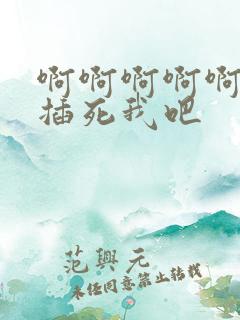 啊啊啊啊啊
插死我吧
范興元
未经同意禁止转载